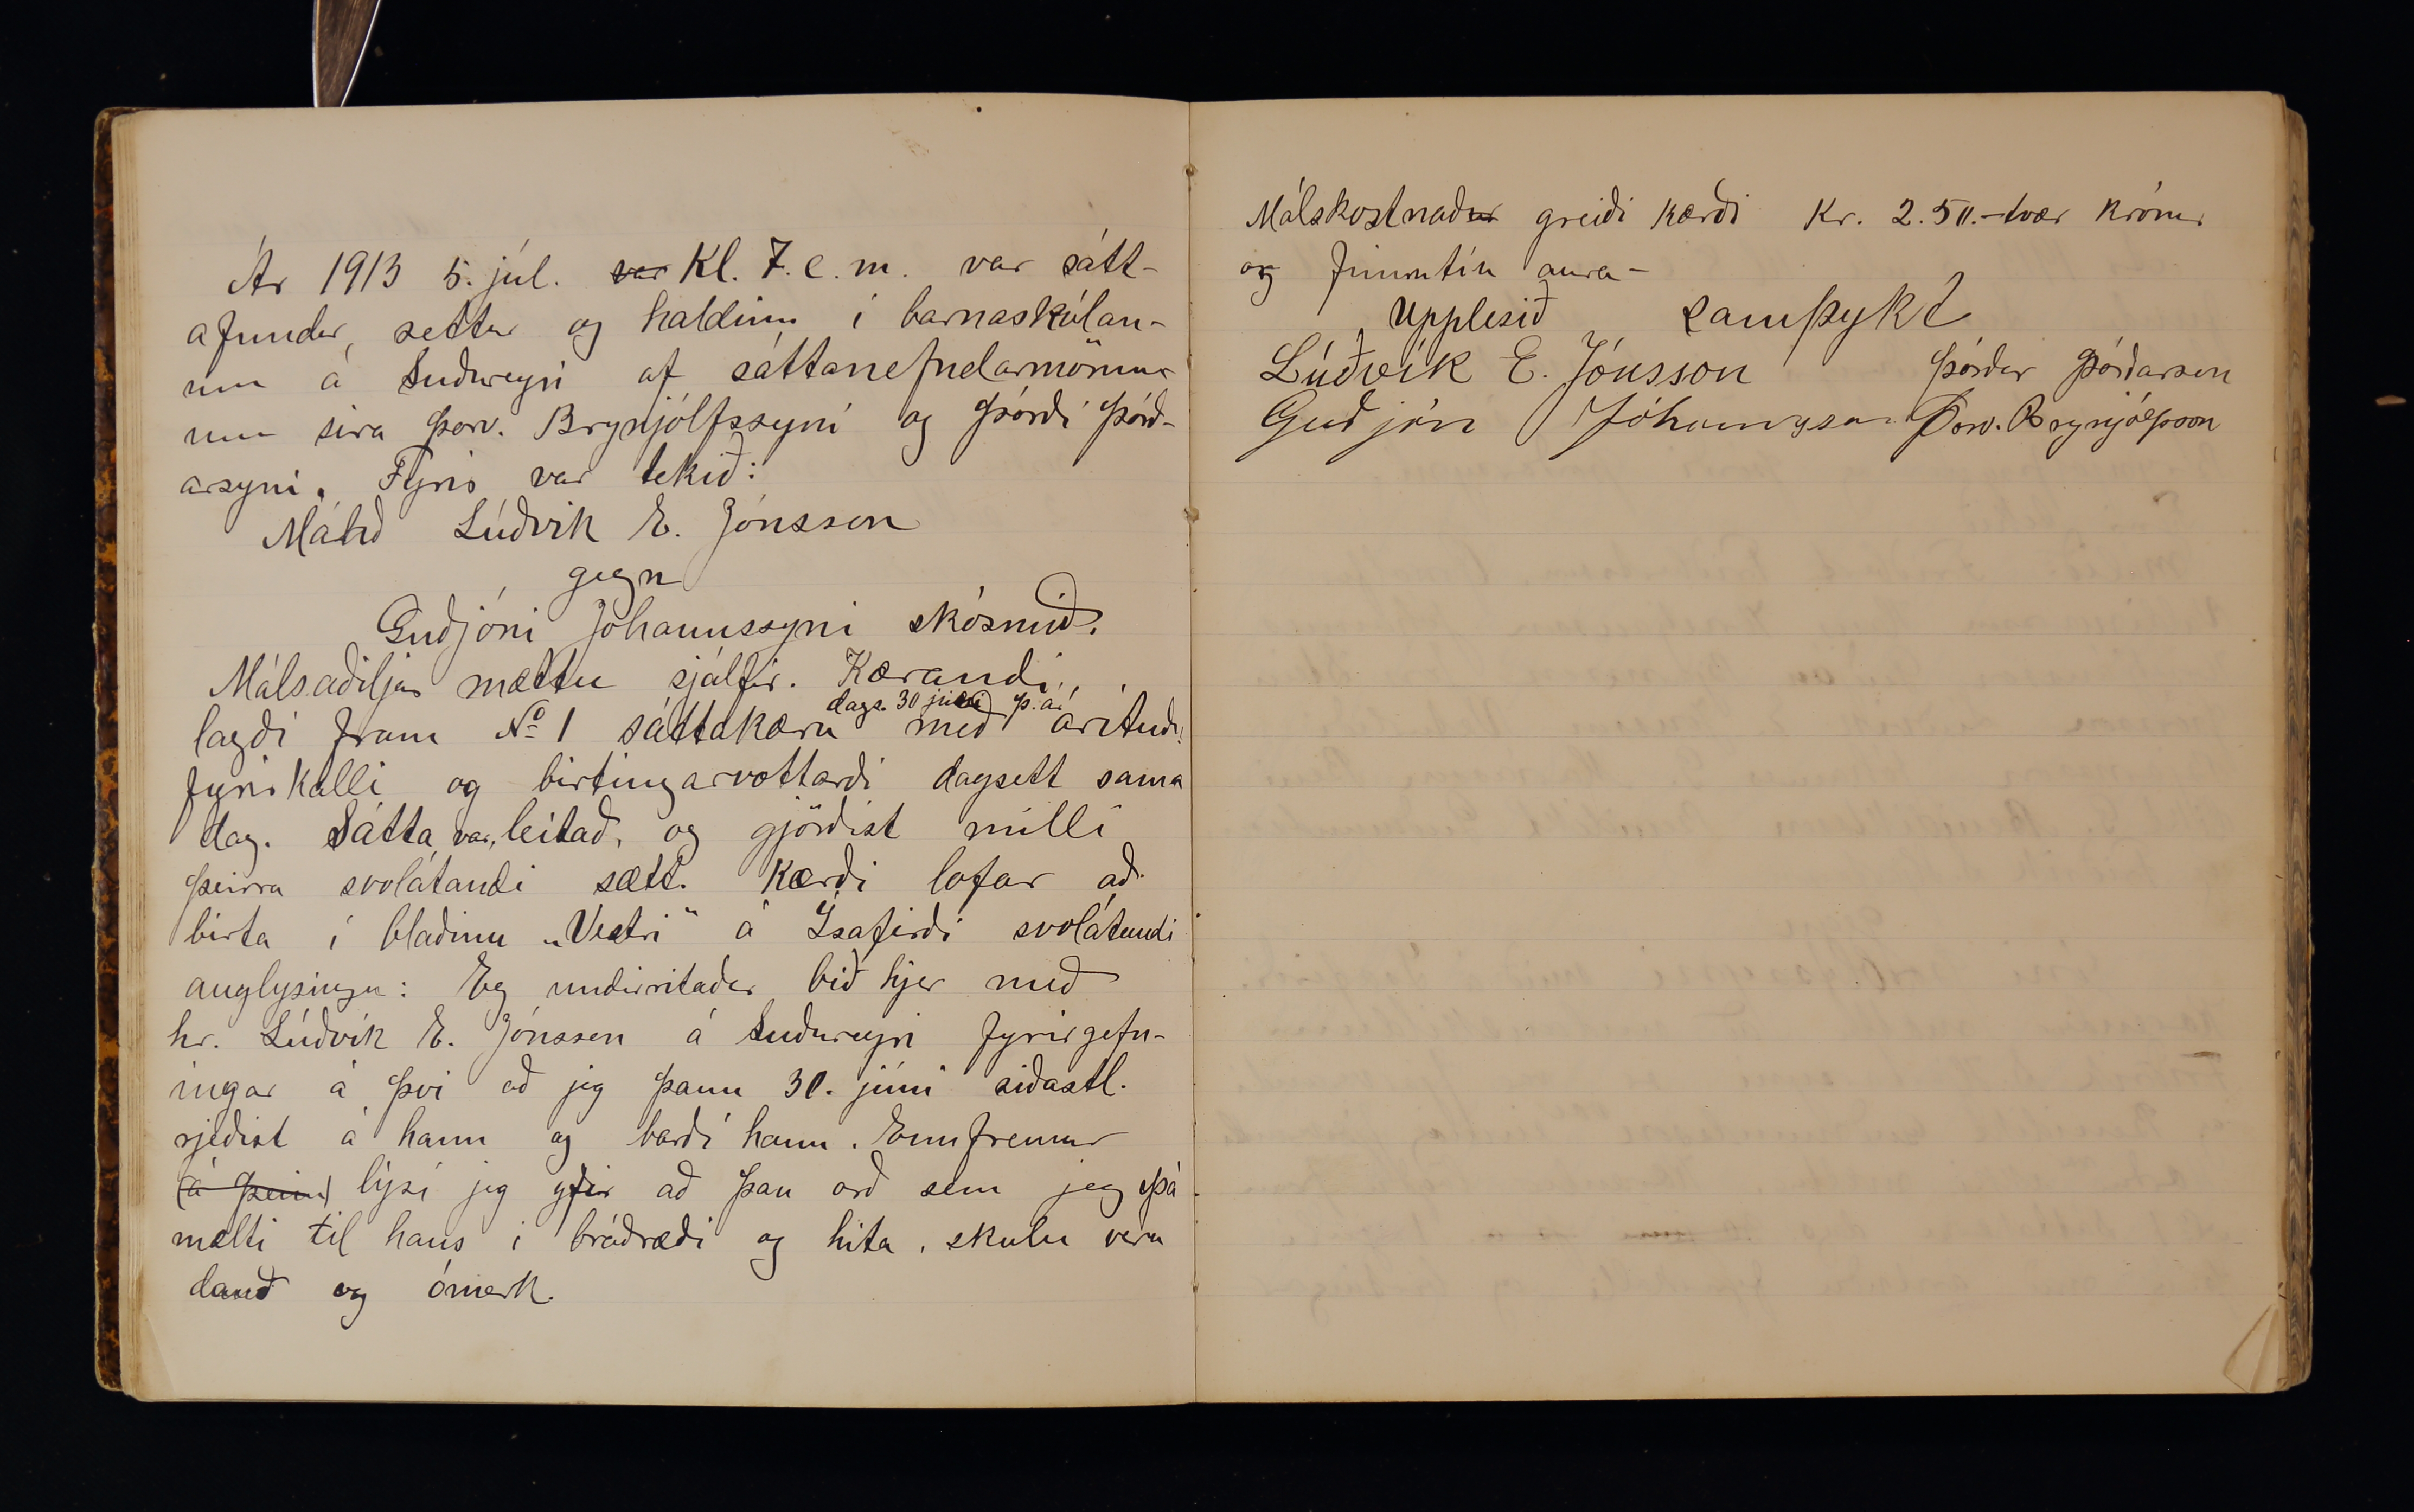 Ár 1913 5. júl. var Kl. 7. e. m. var sátt-
afundur, settur og haldinn í barnaskólan-
um á Suðureyri af sáttanefndarmönn-
um sira Þorv. Brynjólfssyni og Þórði Þórð-
arsyni. Fyrir var tekið:
Málið Lúðvik E. Jónsson
gegn
Guðjóni Jóhannssyni skósmið.
Málsaðiljar mættu sjálfir. Kærandi
dags. 30 júní þ. á.
lagði fram No 1 sáttakæru með árituðu
fyrirkalli og birtingarvottorði dagsett sama
dag. Sátta var leitað, og gjörðist milli
þeirra svolátandi sætt. Kærði lofar að
birta í blaðinu „Vestri" á Ísafirði svolátandi
auglysingu: Eg undirritaður bið hjer með
hr. Lúðvík E. Jónsson á Suðureyri fyrirgefn-
ingar á því að jeg þann 30. júni siðastl.
rjeðist á hann og barði hann. Ennfremur
(á þeim) lýsi jeg yfir að þau orð sem jeg þá
mælti til hans i bráðræði og hita, skulu vera
dauð og ómerk.
Málskostnaður greiði kærði Kr. 2.50.- tvær krónur
og fimmtíu aura-
Upplesið samþykt
Lúðvík E. Jónsson Þórður Þórðarson
Guðjón Jóhannsson Þorv. Brynjólfsson